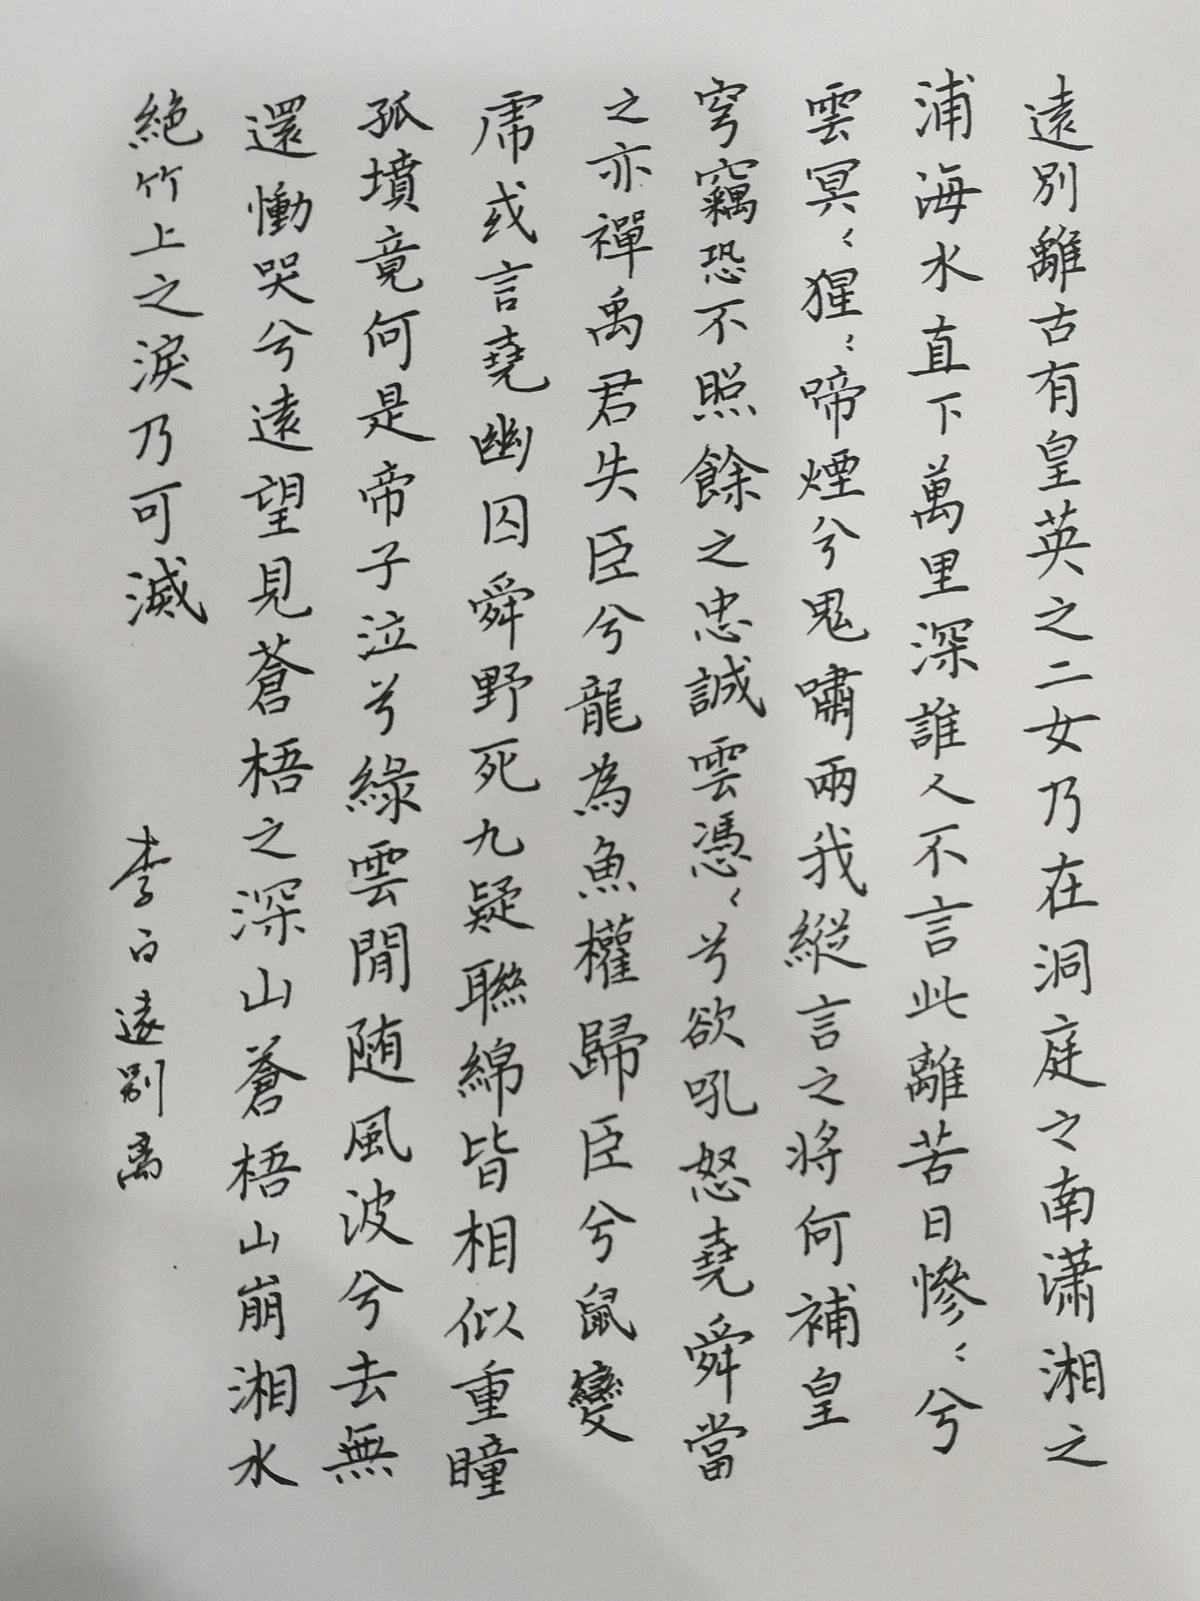 遠別離古有皇英之二女乃在洞庭之南瀟湘之
浦海水直下萬里深誰人不言此離苦日慘〻兮
雲冥〻猩〻啼煙兮鬼嘯雨我縱言之將何補皇
穹竊恐不照餘之忠誠雲憑〻兮欲吼怒堯舜當
之亦禪禹君失臣兮龍為魚權歸臣兮鼠變
虎或言堯幽囚舜野死九疑聯綿皆相似重瞳
孤墳竟何是帝子泣兮綠雲間随風波兮去無
還慟哭兮遠望見蒼梧之深山蒼梧山崩湘水
絶竹上之淚乃可滅
李白遠别离